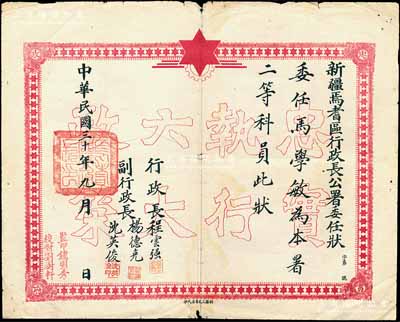 新疆焉耆區行政長公署委任狀
委任馬學敏為本署
二等科員此狀
行政長程雲強
副行政長楊德克
沈英俊
中華民國三十年九月 日
忠實執行六大政策
監印錢明秀